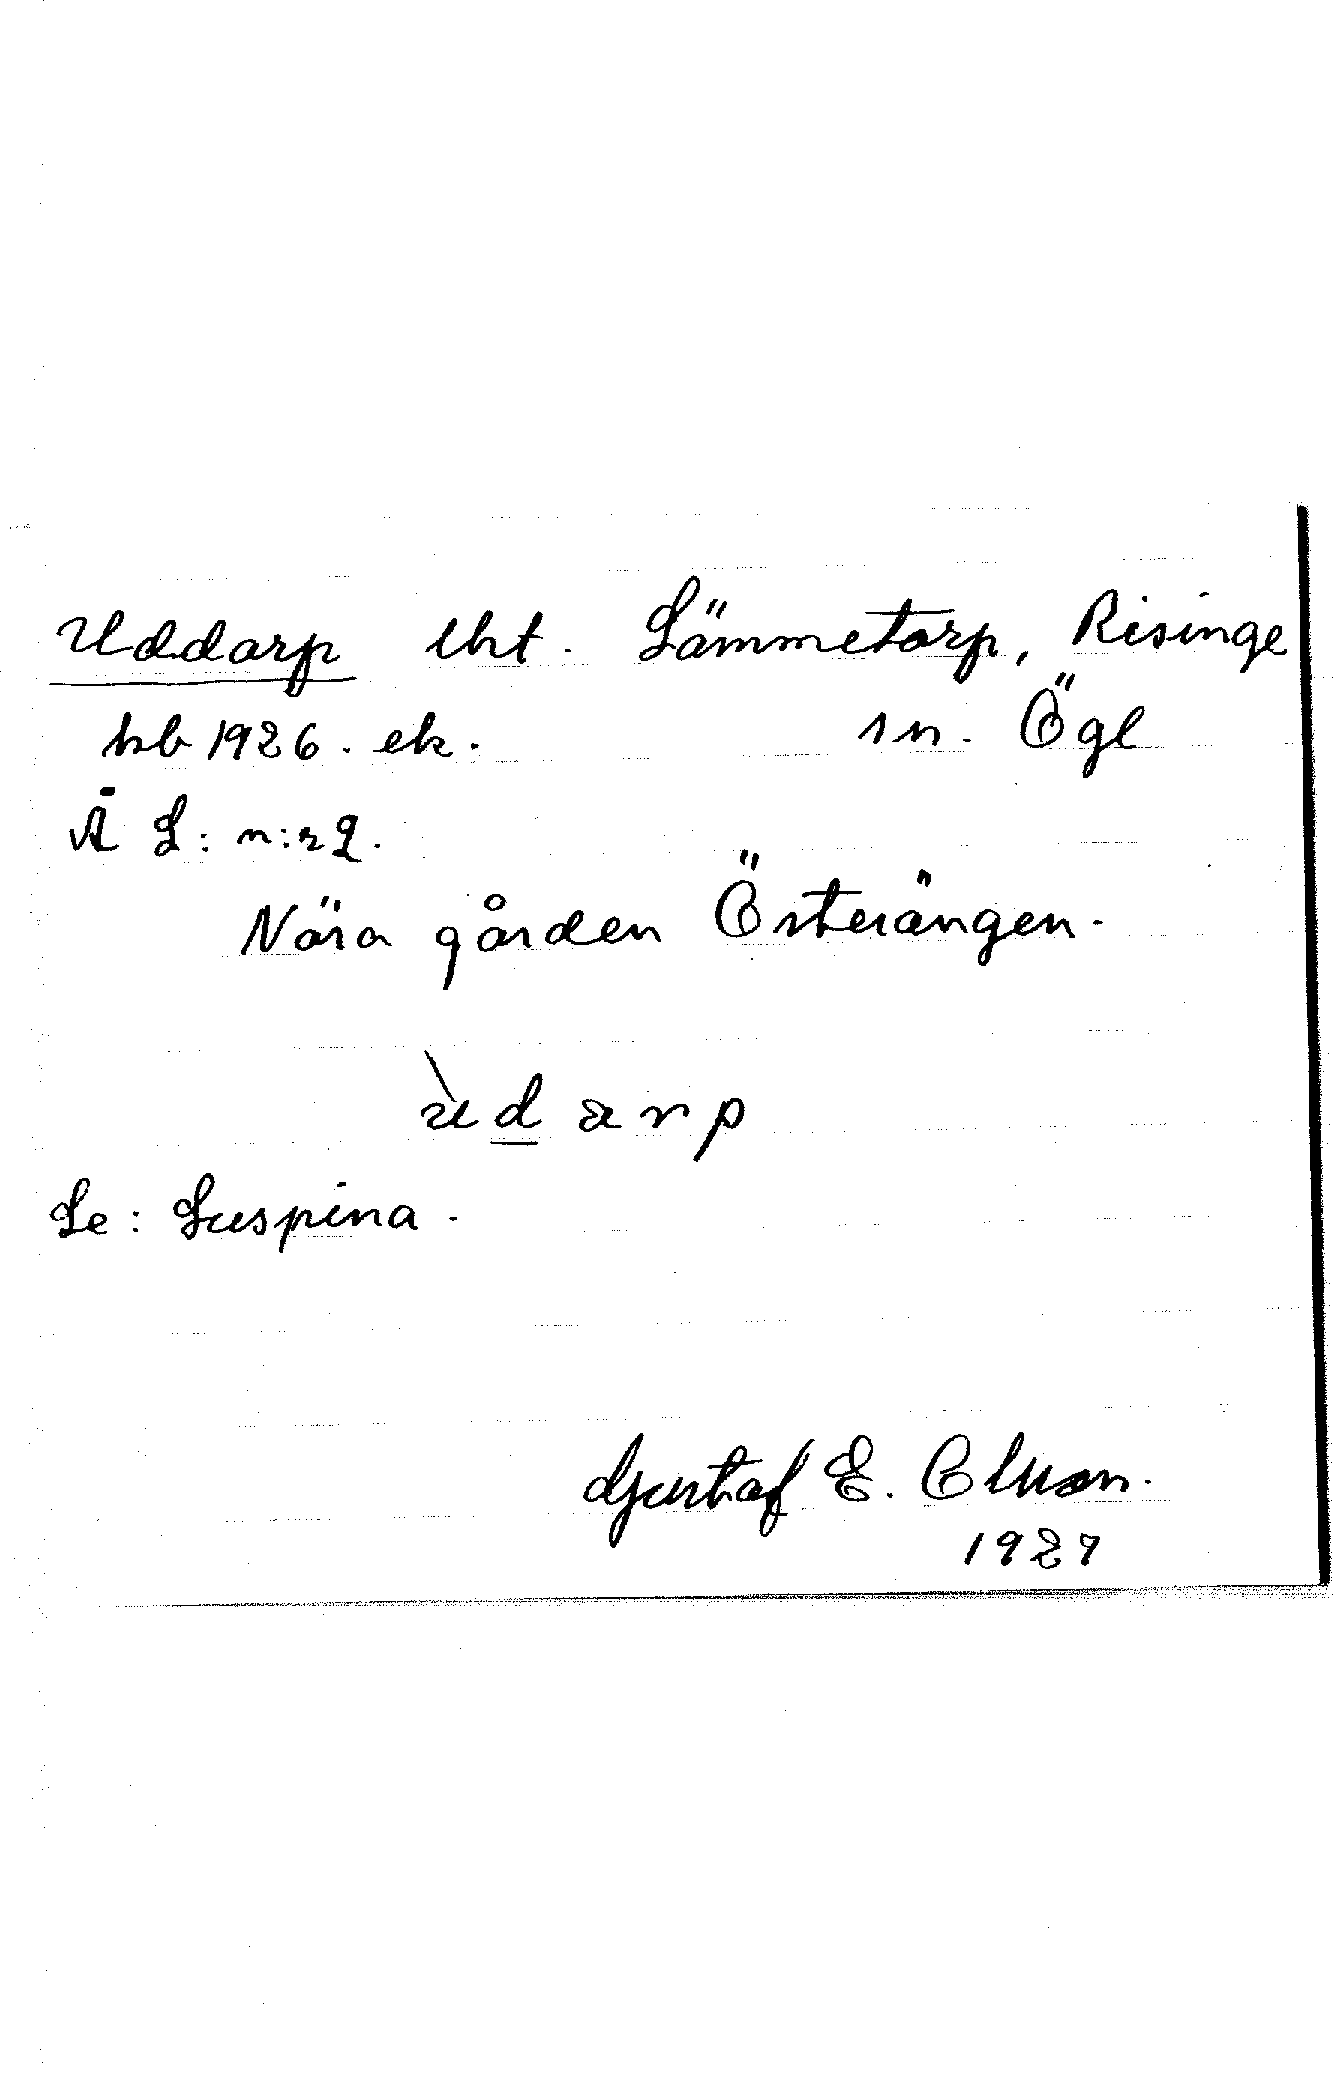 Uddarp lht. Lämmetorp, Risinge
hb 1926. ek. sn. Ögl
Ä L: n:r 2.
Nära gården Österängen.
ùdarp
Le: Luspina.
Gustaf E. Cluson.
1927